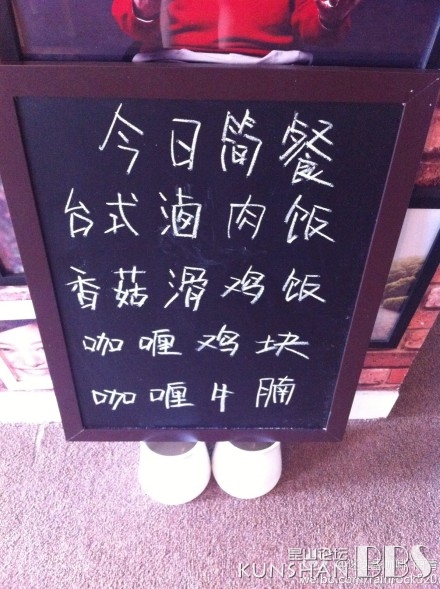 今日简餐
台式滷肉饭
香菇滑鸡饭
咖喱鸡块
咖喱牛腩
昆山论坛
KUNSHAN BBS